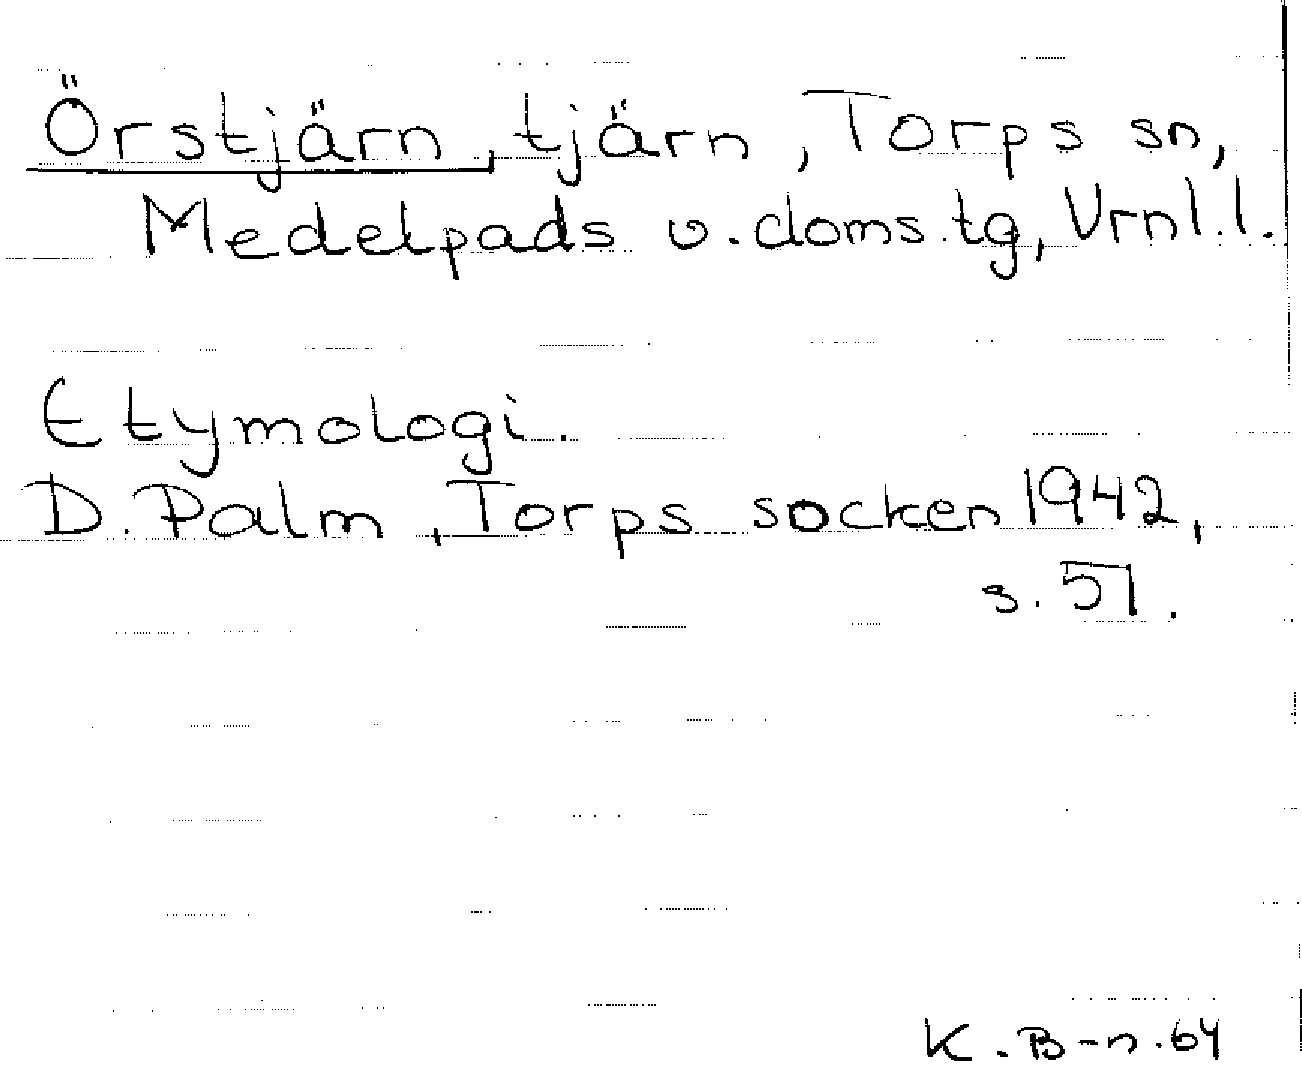 Örstjärn, tjärn, Torps sn,
Medelpads v. doms.tg, Vrnl.l.
Etymologi.
D. Palm, Torps socken 1942,
s. 51.
K.B-n. 64